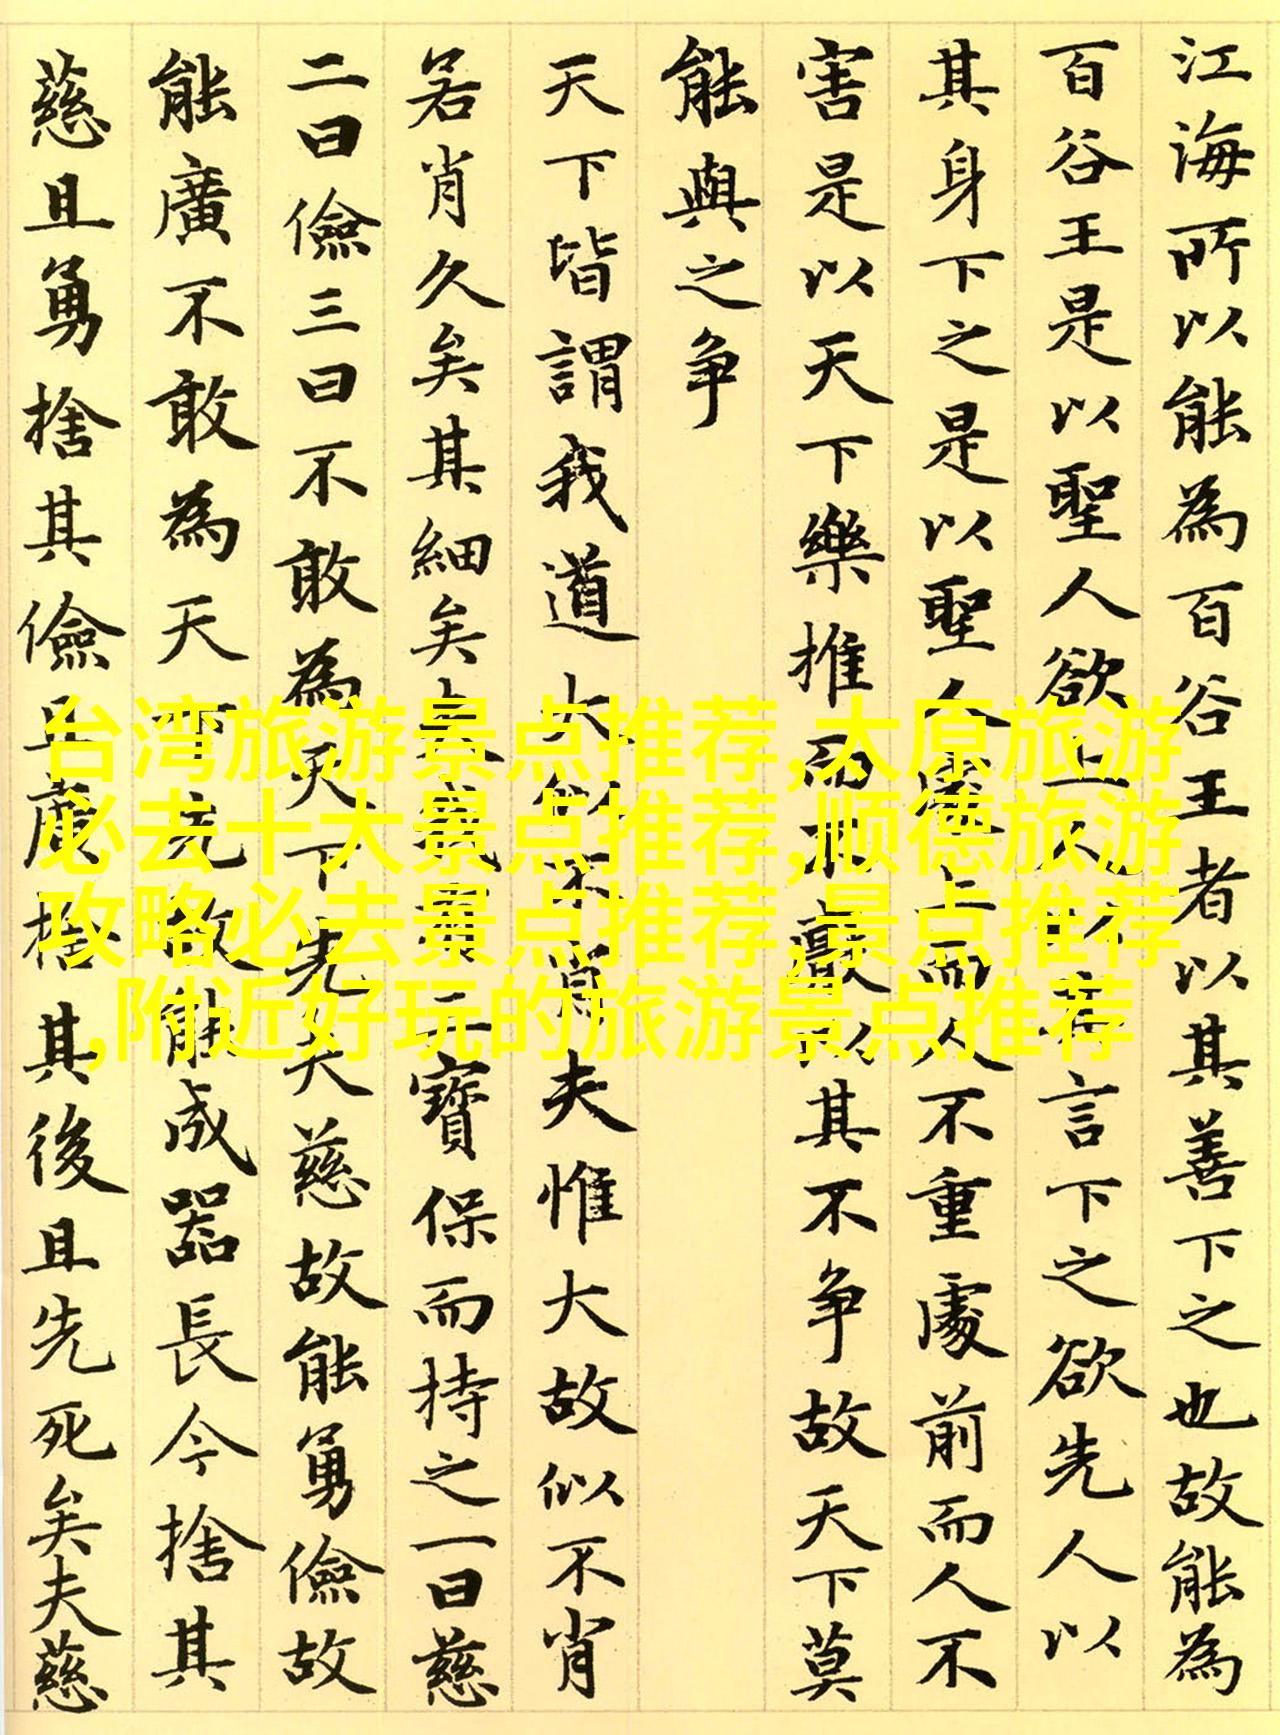 江海所以能為百谷王者以其善下之也故能為
百谷王是以聖人欲上人必言下之欲先人以
其身下之是以聖人處上而人不重處前而人不
害是以天下樂推而不厭以其不争故天下莫
能與之争
天下皆謂我道大似不肖夫惟大故似不肖
若肖久矣其細矣夫我有三寶保而持之一曰慈
二曰儉三曰不敢為天下先夫慈故能勇儉故
能廣不敢為天下先故能成器長今捨其
慈且勇捨其儉且廣捨其後且先死矣夫慈
台湾旅游景点推荐,太原旅游
必去十大景点推荐,顺德旅游
攻略必去景点推荐,景点推荐
,附近好玩的旅游景点推荐